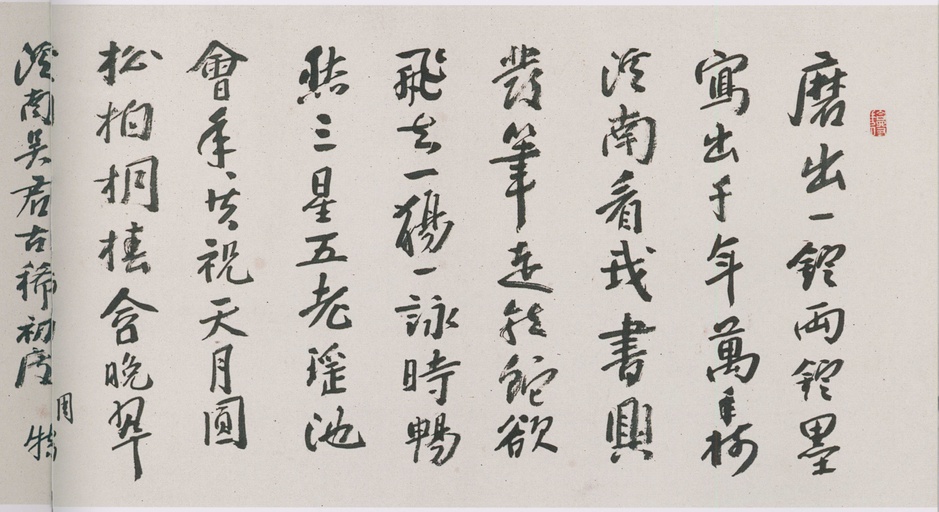 磨出一錠兩錠墨
寫出千年萬年樹
溪南看我書興
發筆走龍蛇欲
飛去一觴一詠時暢
然三星五老瑤池
會年〻共祝天月圓
松柏桐椿含晚翠
溪南吳君古稀初度
用特